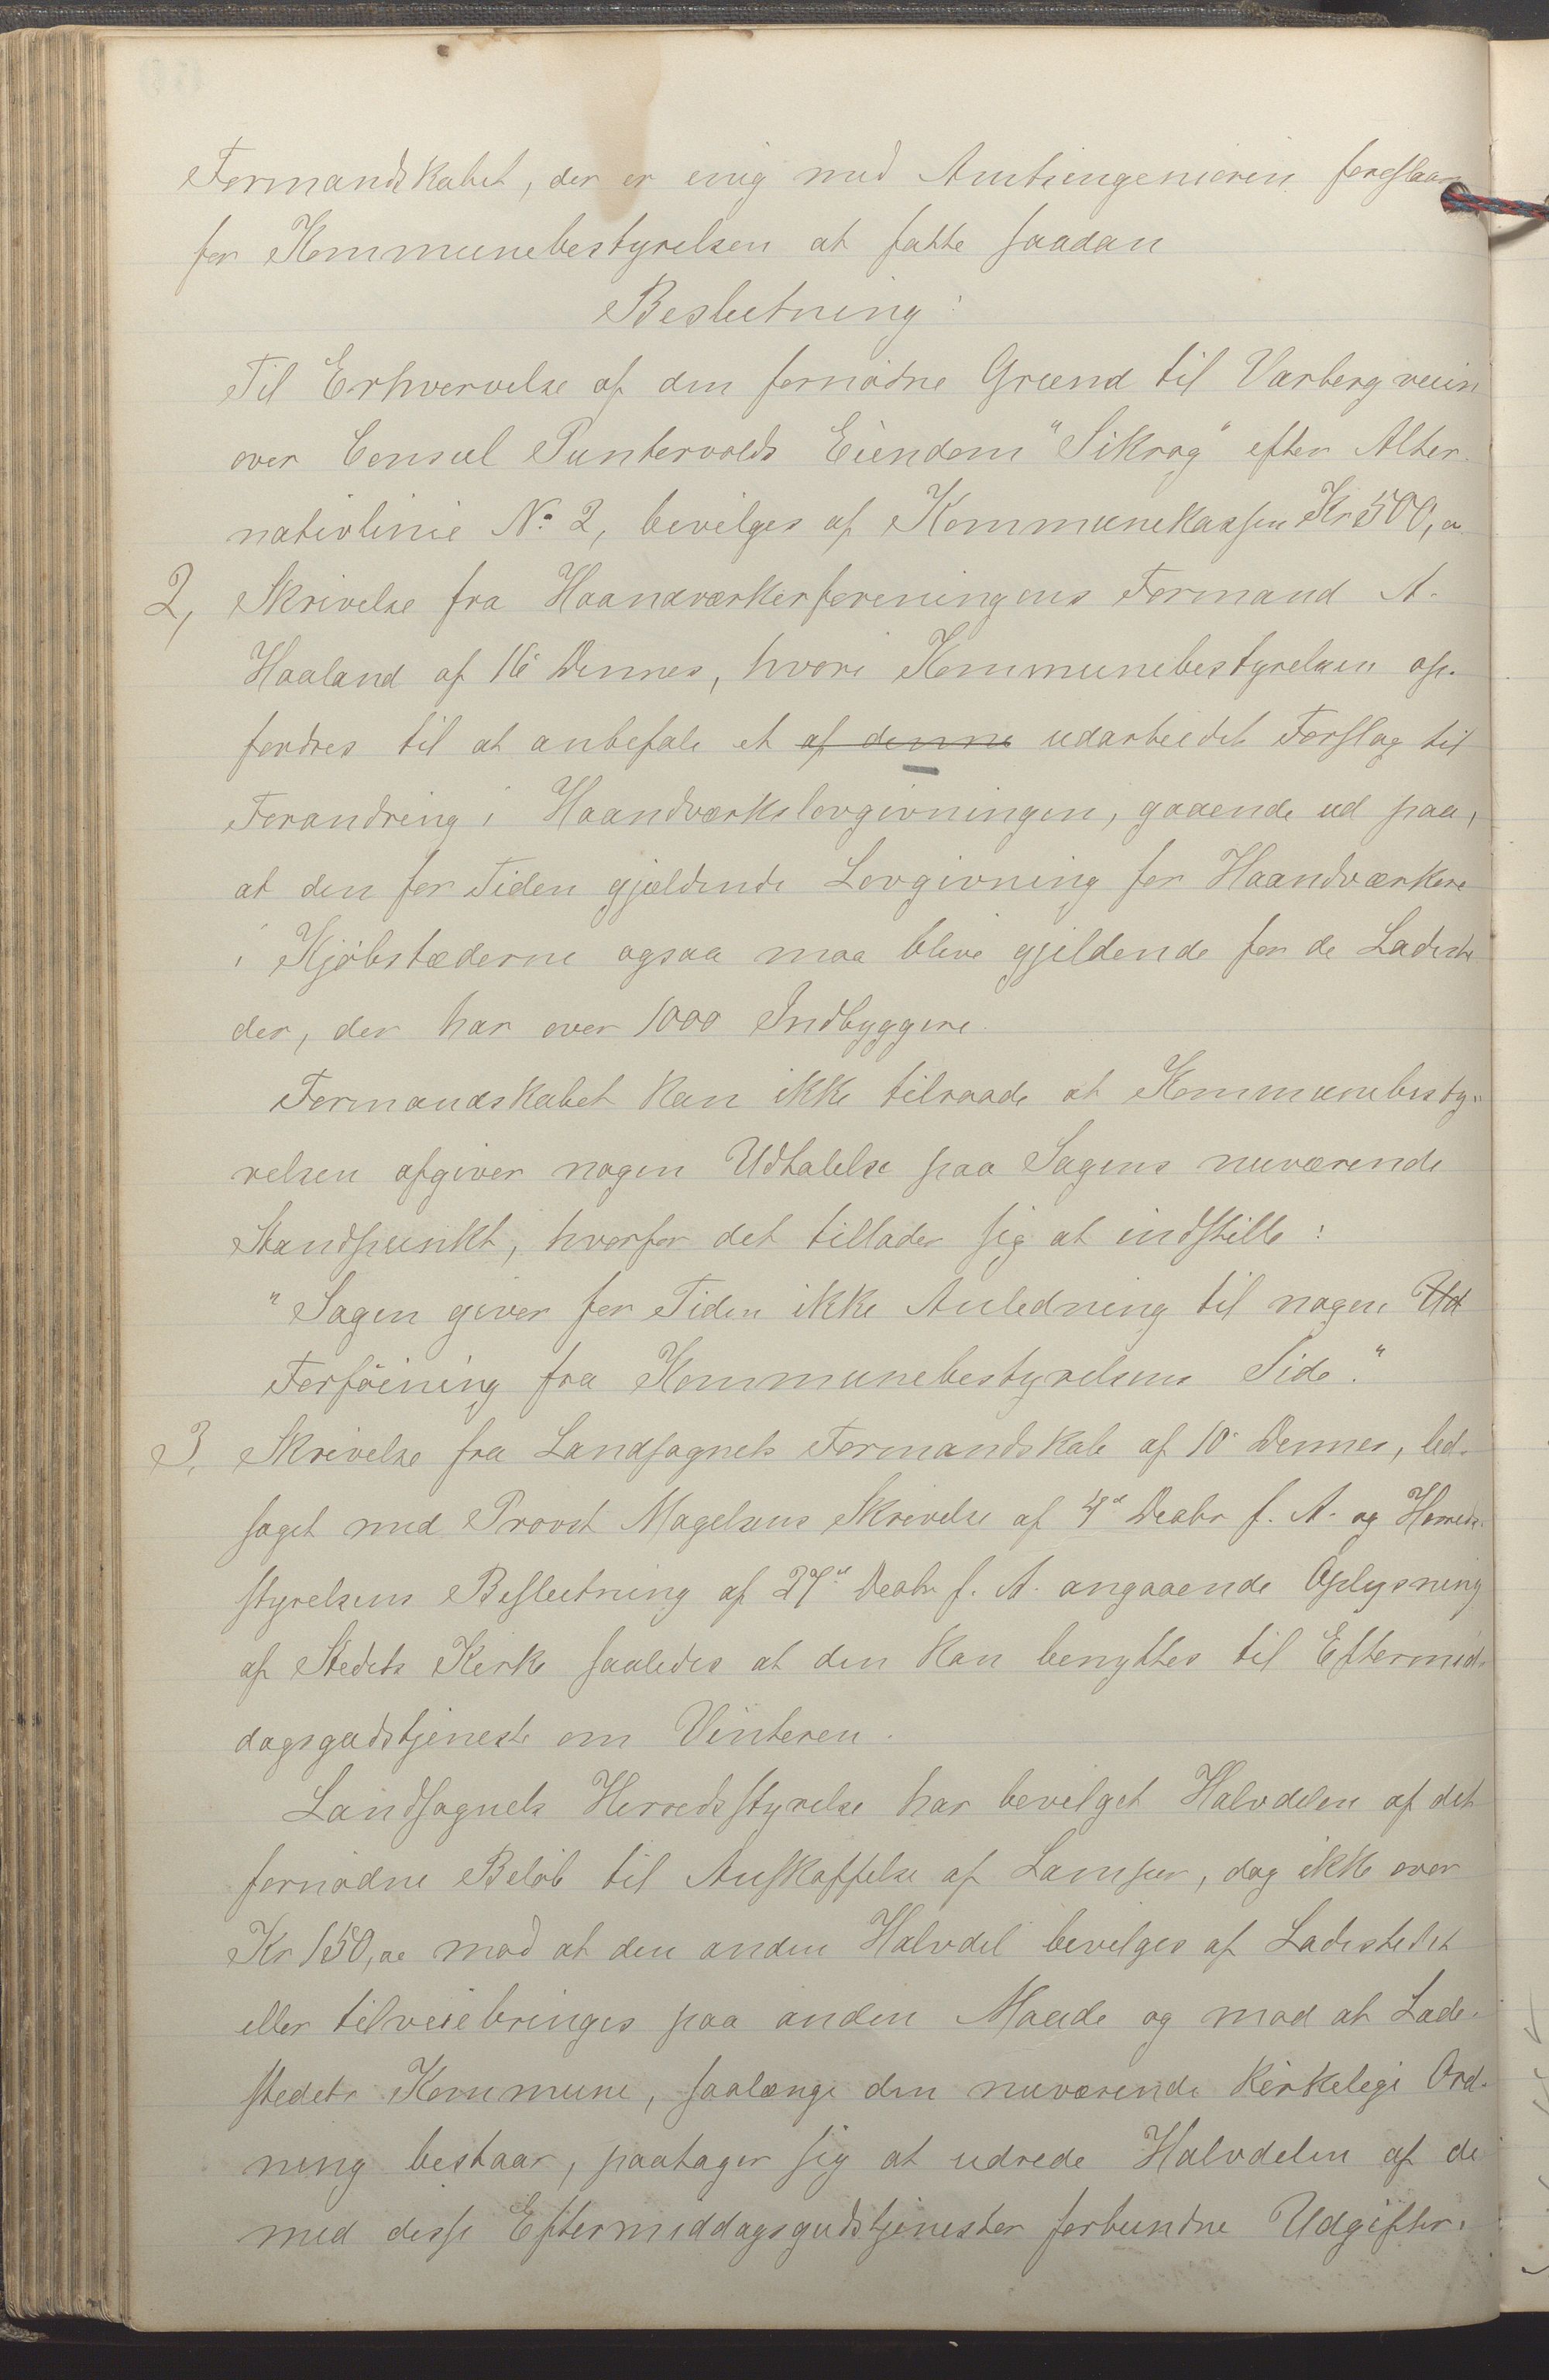 Formandskabet, der er enig med Amtsingeniøren foreslaar
for Kommunebestyrelsen at fatte saadan
Beslutning:
Til Erhvervelse af den fornødne Grund til Varbergveien
over Consul Puntervolds Eiendom "Sikrag" efter Alter-
nativlinie No 2, bevilges af Kommunekassen Kr 500,00
2, Skrivelse fra Haandværkerforeningens Formand A.
Haaland af 16 Dennes, hvori Kommunebestyrelsen op-
fordres til at anbefale et af denne udarbeidet Forslag til
Forandring i Haandværkslovgivningen, gaaende ud paa,
at den for Tiden gjældende Lovgivning for Haandværkere
i Kjøbstæderne ogsaa maa blive gjeldende for de Ladeste
der, der har over 1000 Indbyggere.
Formandskabet kan ikke tilraade at Kommunebesty-
relsen afgiver nogen Udtalelse paa Sagens nuværende
Standpunkt, hvorfor det tillader sig at indstille:
"Sagen giver for Tiden ikke Anledning til nogen Ud
Forføining fra Kommunebestyrelsens Side."
3. Skrivelse fra Landsognets Formandskab af 10 Dennes, led-
saget med Provst Magelsens Skrivelse af 4de Decbr f. A. og Herreds-
styrelsens Beslutning af 27de Decbr f. A. angaaende Oplysning
af Stedets Kirke saaledes at den kan benyttes til Eftermid-
dagsgudstjeneste om Vinteren.
Landsognets Herredsstyrelse har bevilget Halvdelen af det
fornødne Beløb til Anskaffelse af Lamper, dog ikke over
Kr 150,00 mod at den anden Halvdel bevilges af Ladestedet
eller tilveiebringes paa anden Maade og mod at Lade-
stedets Kommune, saalænge den nuværende kirkelige Ord-
ning bestaar, paatager sig at udrede Halvdelen af de
med disse Eftermiddagsgudstjenester forbundne Udgifter.